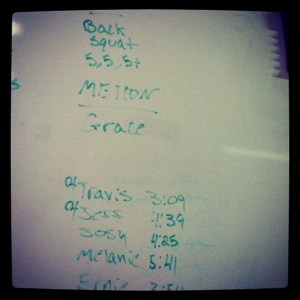 Back
Squat
5, 5, 5+
METCON
Grace
Travis 3:09
Jess 4:39
Josh 4:25
Melanie 5:41
Ernie